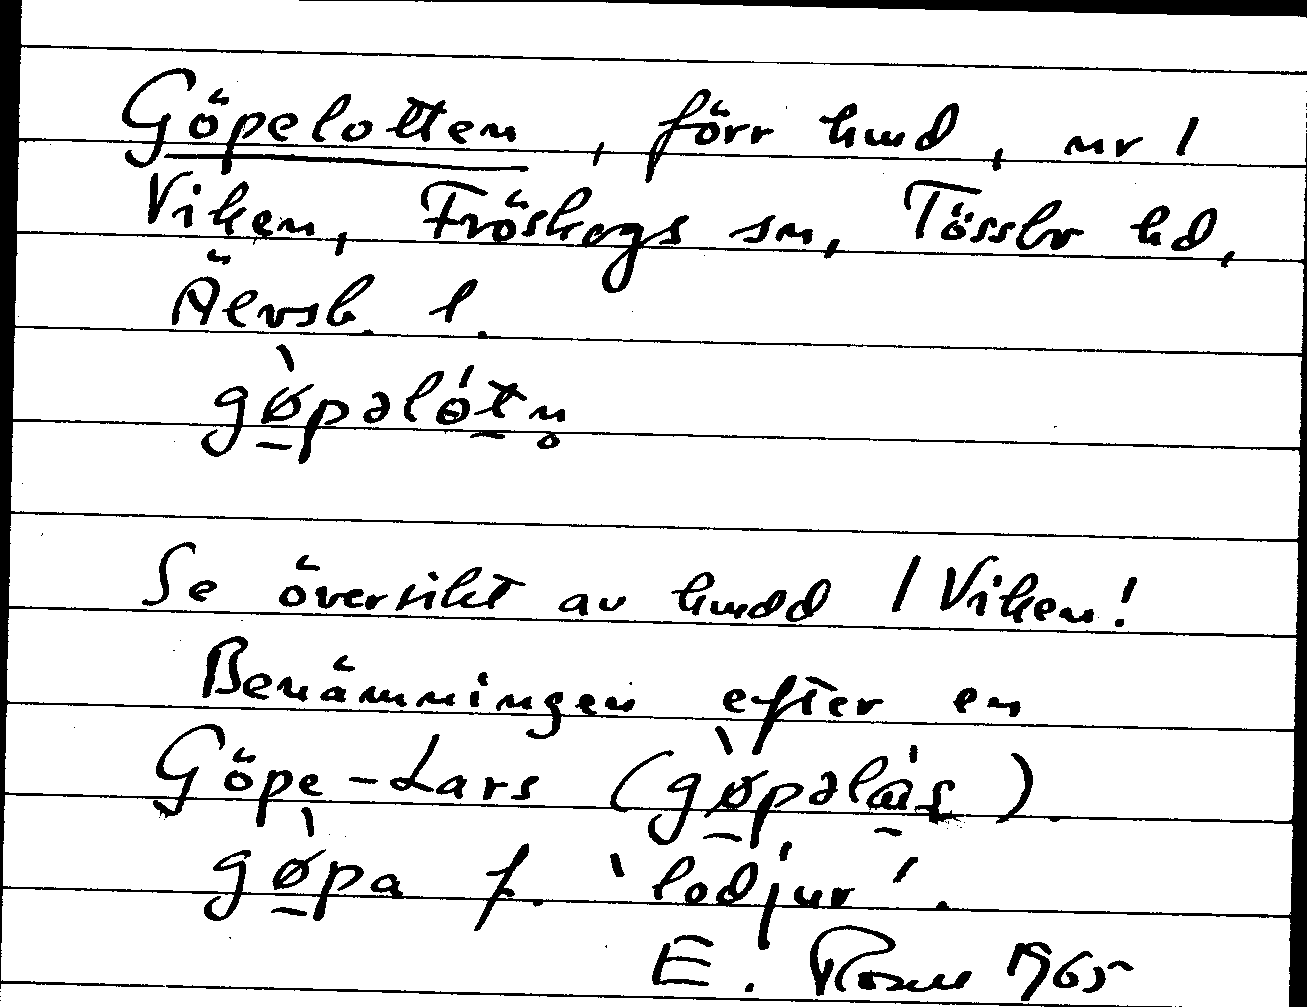 Göpelotten, förr hmd, nr 1
Viken, Fröskogs sn, Tössbo hd,
Älvsb. l.
gø̀pəlótn̥
Se översikt av hmdd 1 Viken!
Benämningen efter en
Göpe-Lars (gø̀pəlás).
gø̀pa f. 'lodjur'.
E. Rosell 1965